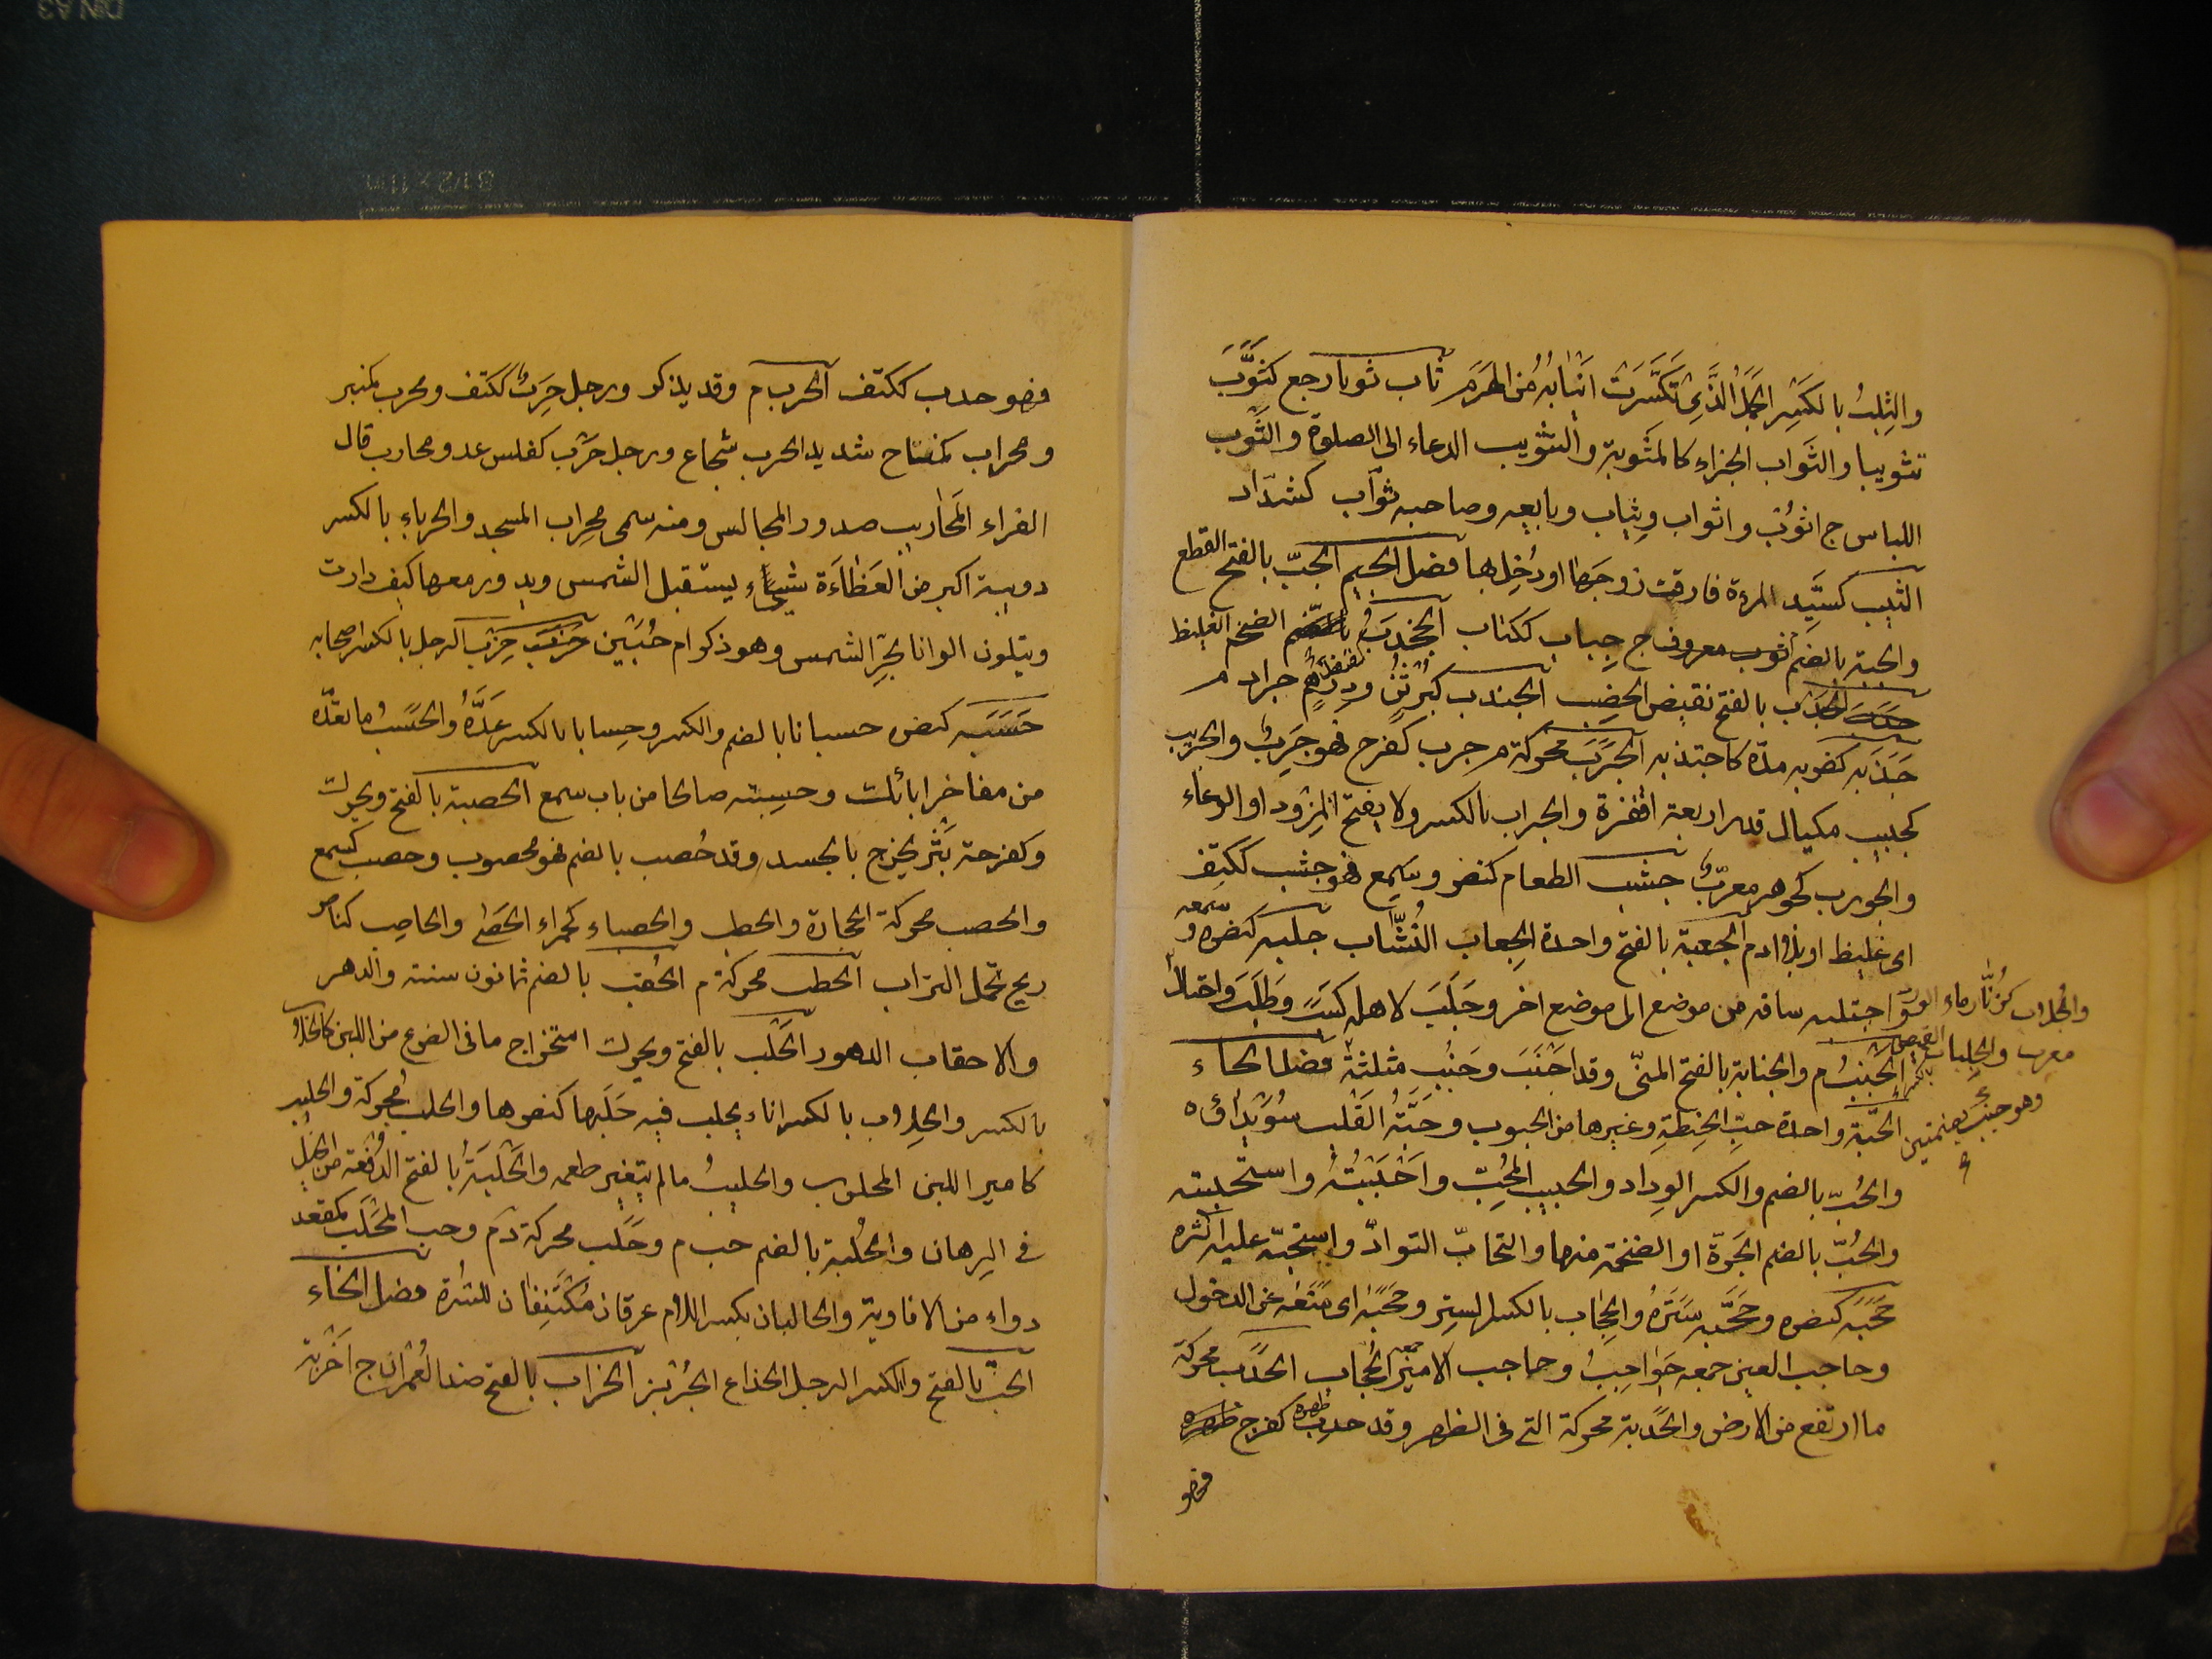 والثِلبُ بالكَسْرِ الجَمَلُ الَّذِى تَكَسَّرَتْ اَنْيَابُهُ مِنَ الهَرَمِ ثاب ثوبا رجع كثَوَّبَ
تثويبا والثَواب الجزاء كالمَثُوبة والتثويب الدعاء الى الصلوة والثَوب
اللباس ج اثوُب واثواب وثِياب وبايعه وصاحبه ثوّاب كشدّاد
الثيب كسَيِّد المرءة فارقت زوجَها او دُخِل بها فصل الجيم الجَبّ بالفتح القطع
والجبة بالضم ثوب معروف ج جِباب ككتاب الجخدب الضخم الغليظ
الجَدْب بالفتح نقيض الخِصب الجندب كبُرْثُن ودِرْهَم جراد م
جَذَبَه كضربه مدّه كاجتذبه الجَرَبَ محركة م جرب كفرح فهو جَرِبٌ والجريب
كحبيب مكيال قدر اربعة اقفزة والجراب بالكسر ولا يفتح المِزْوَد او الوعاء
والجورب كجوهر معرّبٌ جشب الطعام كنصر وسَمِع فهو جشب ككَتِف
اى غليظ او بلا ادم الجعبة بالفتح واحدة الجِعاب النُشَّاب جلبه كنصره و
سمعه
اجتلبه ساقه من موضع الى موضع اخر وجَلَبَ لاهله كَسَبَ وَطَلَبَ واحتال
والجُلاب كزُنَّار ماء الورد
معرب والجلباب القميص
الجُنُبُ م والجنابة بالفتح المنىّ وقد اَجْنَبَ وجَنُب مثلثة فصل الحاء
وهو جنب بضمتين
الحَبّة واحدة حبّ الحِنطةِ وغيرها من الحبوب وحَبَّةُ القَلْبِ سُوَيْدَاؤه
والحُبّ بالضم والكسر الوِداد والحبيب المُحِبّ واَحْبَبْتُهُ واستحببته
والحُبّ بالضم الجَرّة او الضخمة منها والتحابّ التوادّ واستحبّه عليه اثره
حَجَبَه كنصره وحَجَّبه سَتَرَهُ والحِجَاب بالكسر السِتر وحَجَبَهُ اى مَنَعَه عن الدخول
وحاجب العين جمعه حَوَاجِبُ وحاجب الامير جمعه الحُجاب الحَدَب محركة
ما ارتفع من الارض والحَدبة محركة التى فى الظهر وقد حدِب ظهره كفرح
فهو
فهو حدب ككتف الحرب م وقد يذكر ورجل حَرِبٌ ككتف ومحرب كمنبر
ومحراب كمفتاح شديد الحرب شجاع ورجل حَرْب كفلس عدو محارب قال
الفراء المَحَاريب صدور المجالس ومنه سمى مِحراب المسجد والحرباء بالكسر
دويبة اكبر من العَظَاءَة شيئاً يستقبل الشمس ويدور معها كيف دارت
ويتلون الوانا بحَرِّ الشمس وهو ذكر ام حُبَيْن حِزْبُ الرجل بالكسر اصحابه
حَسَبَه كنصر حسبانا بالضم والكسر وحِسابا بالكسر عَدَّهُ والحَسَبُ ما تعدّه
من مفاخر ابائك وحسِبته صالحا من باب سمع الحصبة بالفتح ويحرك
وكفرحة بَثْر يخرج بالجسد وقد حُصب بالضم فهو محصوب وحصب كسمع
والحصب محركة الحجارة والحطب والحصباء كحمراء الحَصَى والحاصب كناصر
ريح تحمل التراب الحطب محركة م الحُقب بالضم ثمانون سنة والدهر
والاحقاب الدهور الحَلْب بالفتح ويحرك استخراج ما فى الضرع من اللبن كالحلاب
بالكسر والحِلاب بالكسر اناء يحلب فيه حَلَبها كنصرها والحلب محركة والحليب
كامير اللبن المحلوب والحليبُ ما لم يتغير طعمه والحَلْبَةُ بالفتح الدُفعة من الخَيْلِ
فى الرهان والحُلبة بالضم حب م وحَلَب محركة د م وحب المَحْلَب كمقعد
دواء من الافاوية والحالبان بكسر اللام عرقان مُكْتَنِفَان للسُّرة فصل الخاء
الخبّ بالفتح والكسر الرجل الخداع الجُرْبُز الخراب بالفتح ضد العُمران ج اَخْرِبة